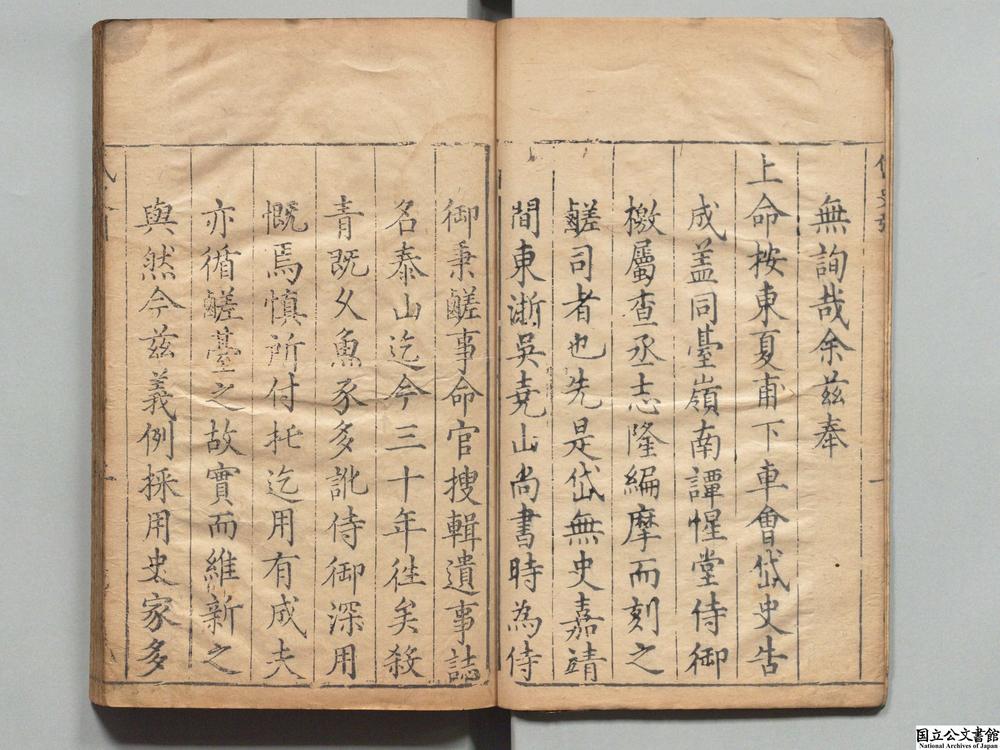 無詢哉余茲奉
上命按東夏甫下車會岱史告
成盖同臺嶺南譚惺堂侍御
檄屬查丞志隆編摩而刻之
鹺司者也先是岱無史嘉靖
間東浙吳堯山尚書時為侍
御秉鹺事命官搜輯遺事誌
名泰山迄今三十年徃矣殺
青既久魚豕多訛侍御深用
慨焉慎所付托迄用有成夫
亦循鹺臺之故實而維新之
與然今茲義例採用史家多
国立公文書館
National Archives of Japan